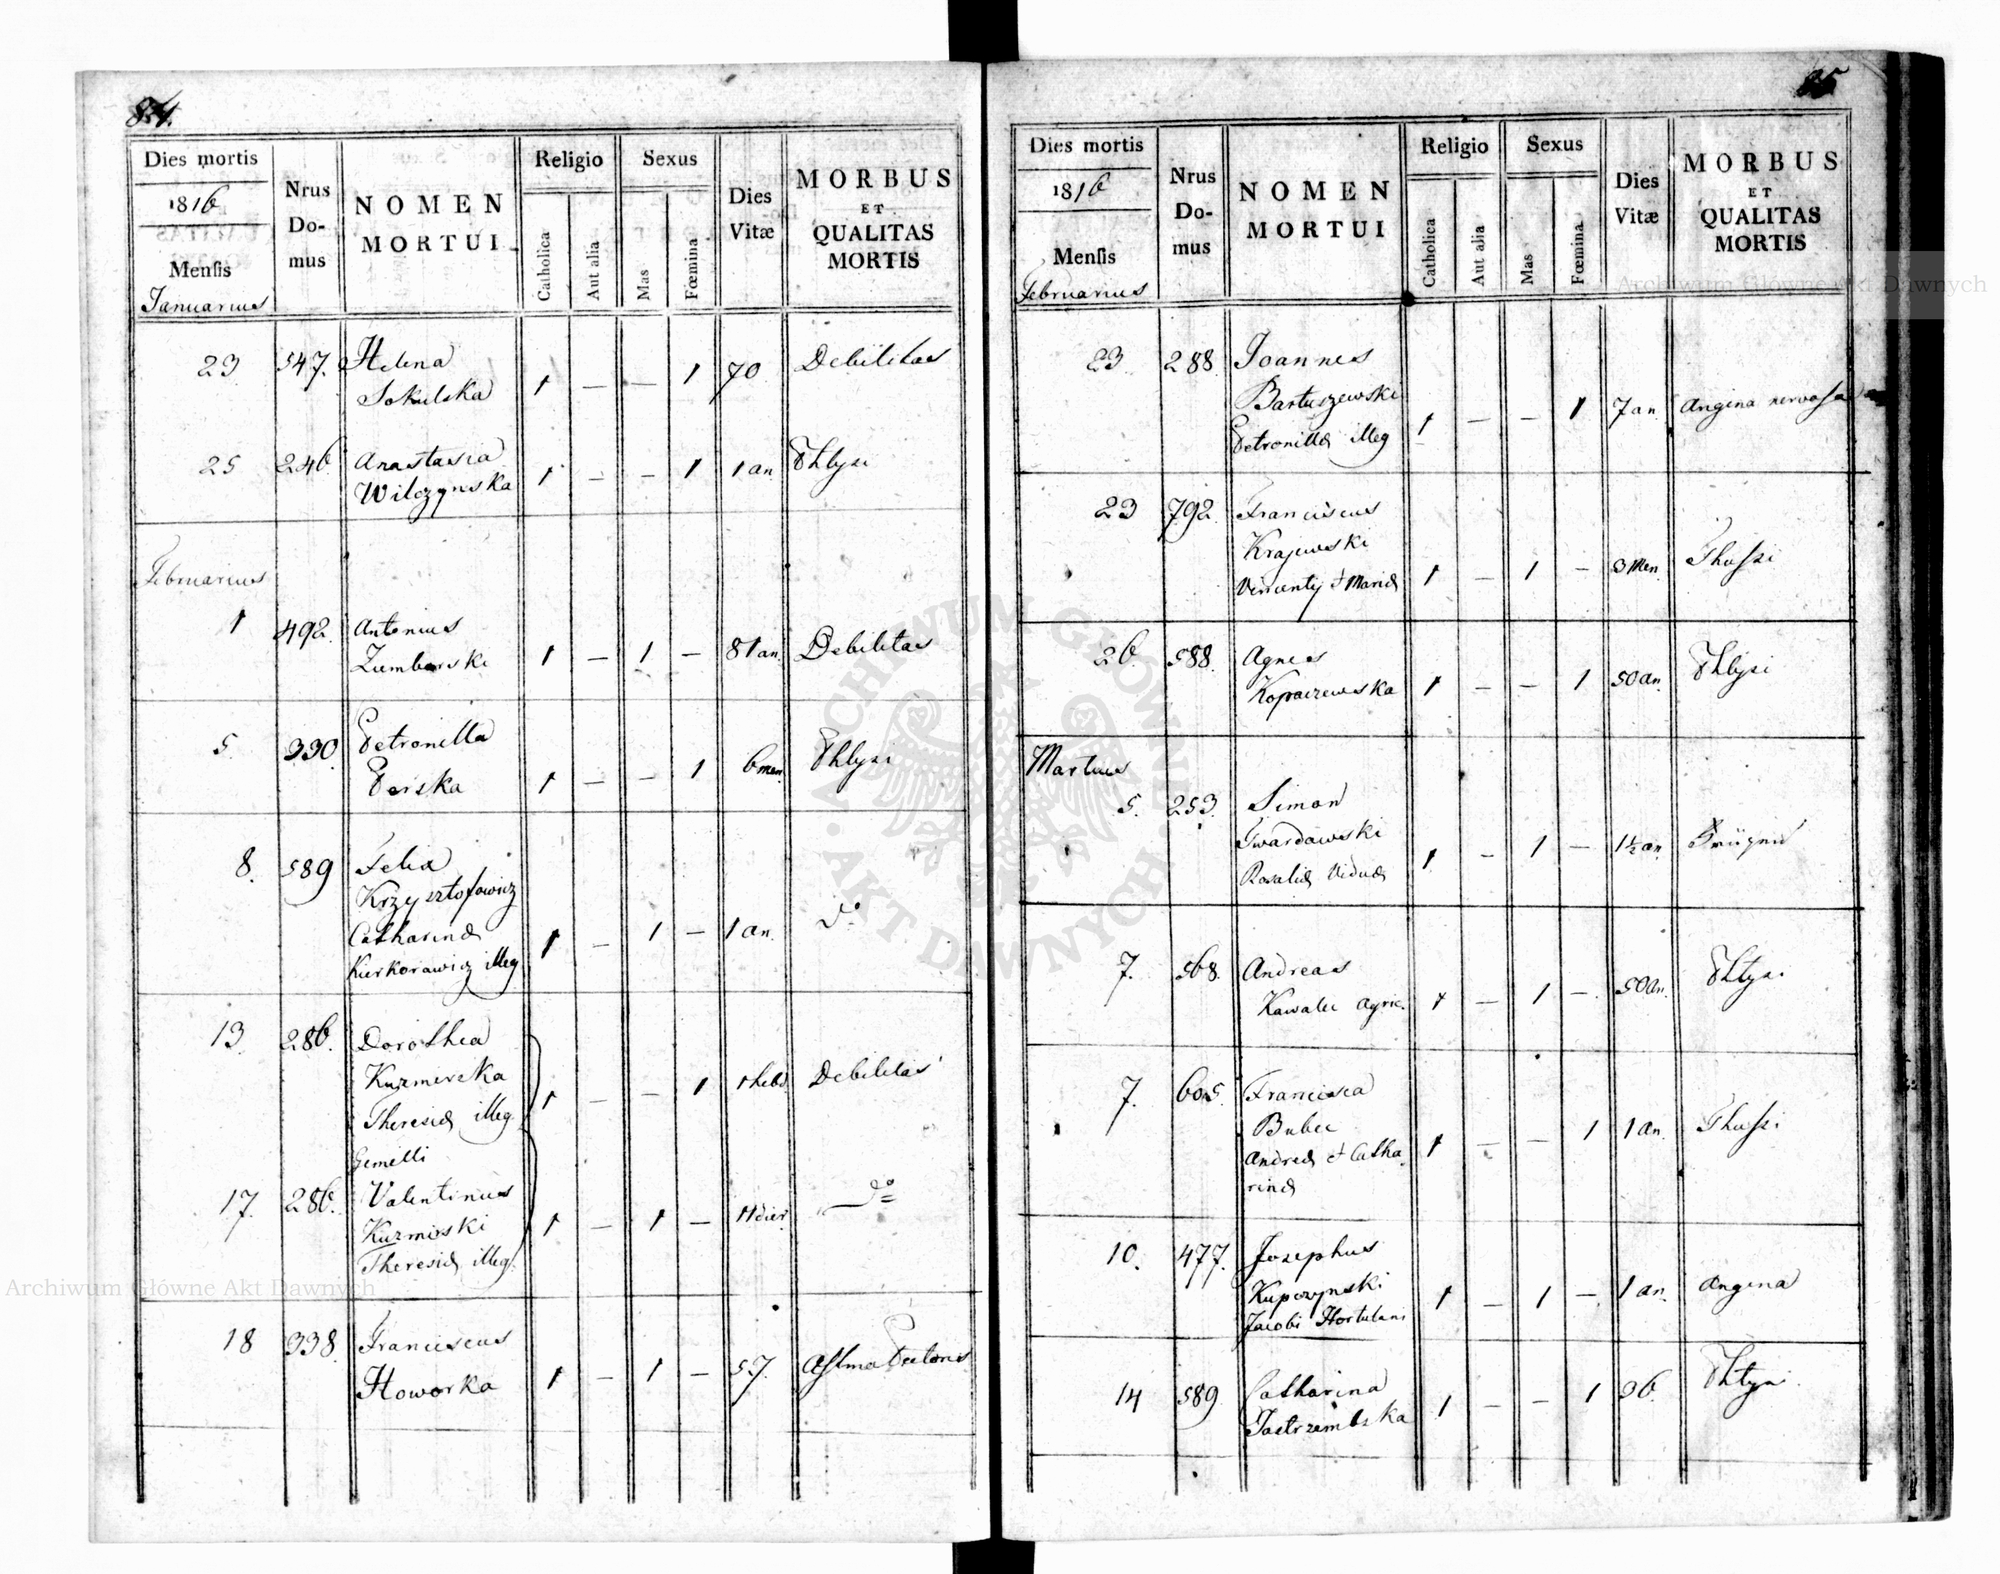 84.
Dies mortis
1816
Mensis
Januarius
Nrus
Do-
mus
NOMEN
MORTUI
Religio
Catholica
Aut alia
Sexus
Mas
Fœmina
Dies
Vitæ
MORBUS
ET
QUALITAS
MORTIS
23 547. Helena
Sokulska 1 — — 1 70 Debilitas
25 246 Anastasia
Wilczynska 1 — — 1 1 an Phtysi
Februarius
1 492. Antonius
Zumborski 1 — 1 — 81 an. Debilitas
5 330. Petronilla
Perska 1 — — 1 6 men. Phtysi
8. 589 Felix
Krzysztofowicz
Catharinæ
Kierkorawicz illeg. 1 — 1 — 1 an. do
13. 286. Dorothea
Kuzmirska
Theresiæ illeg. 1 — — 1 1 hebd. Debilitas
Gemelli
17. 286. Valentinus
Kuzmirski
Theresiæ illeg. 1 — 1 — 11 dier. do
18 338. Franciscus
Howorka 1 — 1 — 57. Astma Pectoris
85
Dies mortis
1816
Mensis
Februarius
Nrus
Do-
mus
NOMEN
MORTUI
Religio
Catholica
Aut alia
Sexus
Mas
Fœmina
Dies
Vitæ
MORBUS
ET
QUALITAS
MORTIS
23. 288. Joannes
Bartuszewski
Petronillæ illeg 1 — — 1 7 an. Angina nervosa
23 792. Franciscus
Krajewski
Vincenty et Mariæ 1 — 1 — 3 Men. Thussi
26. 588. Agnes
Kopaczewska 1 — — 1 50 an. Phtysi
Martius
5. 253. Simon
Gwardawski
Rosaliæ Viduæ 1 — 1 — 1½ an.
7. 568. Andreas
Kawalec Agric. 1 — 1 — 50 an. Phtysi
7. 605. Francisca
Bubec
Andreæ et Catha-
rinæ 1 — — 1 1 an. Thussi
10. 477. Josephus
Kupczynski
Jacobi Hortulani 1 — 1 — 1 an. Angina
14 589. Catharina
Jastrzembska 1 — — 1 36 Phtysi.
Archiwum Główne Akt Dawnych
ARCHIWUM GŁÓWNE
AKT DAWNYCH
Archiwum Główne Akt Dawnych